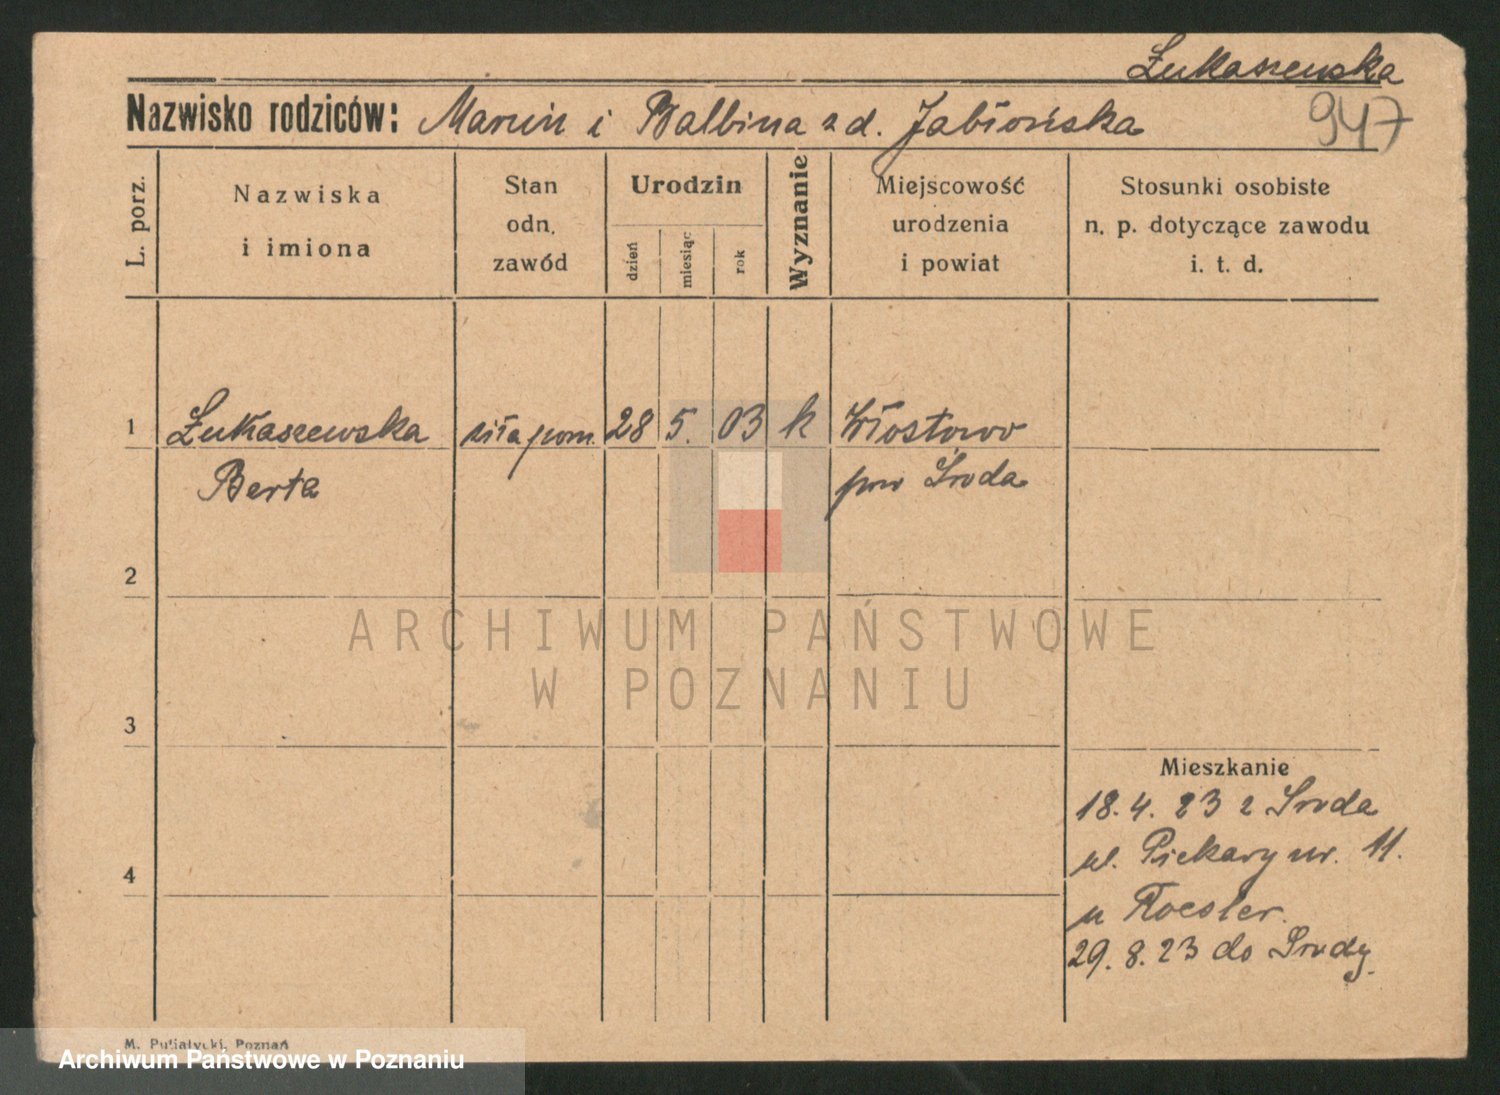 Łukaszewska
Nazwisko rodziców: Marcin i Balbina z d. Jabłońska
947
L. porz.
Nazwiska
i imiona
Stan
odn.
zawód
Urodzin
dzień
miesiąc
rok
Wyznanie
Miejscowość
urodzenia
i powiat
Stosunki osobiste
n. p. dotyczące zawodu
i. t. d.
1 Łukaszewska siła pom. 28 5. 03 k Włostowo
Berta pow Środa
2
3
4
Mieszkanie
18.4.23 z Środa
ul. Piekary nr. 11.
u Roesler.
29.8.23 do Środy.
ARCHIWUM PAŃSTWOWE
W POZNANIU
M. Putiatycki, Poznań
Archiwum Państwowe w Poznaniu